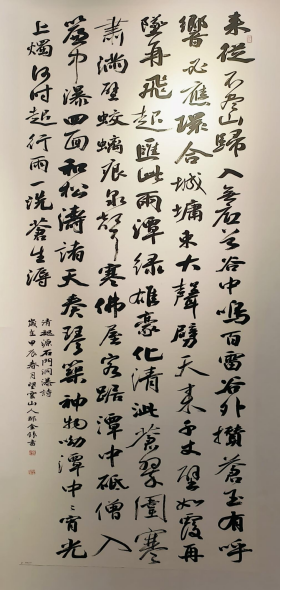 来從不盡山歸入無名谷谷中鳴百雷谷外攢蒼玉有呼
響必應環合城墉東大聲劈天来千丈壁如霞再
墜再飛起匯此兩潭緑雄豪化清泚蒼翠圍寒
肅滿壁蛟螭痕泉聲寒佛屋客踞潭中砥僧入
簾中瀑四面和松濤諸天奏琴築神物幼潭中中宵光
上燭何時起行雨一洗蒼生溽
清 源石門洞瀑詩
歲在甲辰春月望雲山人 金 書